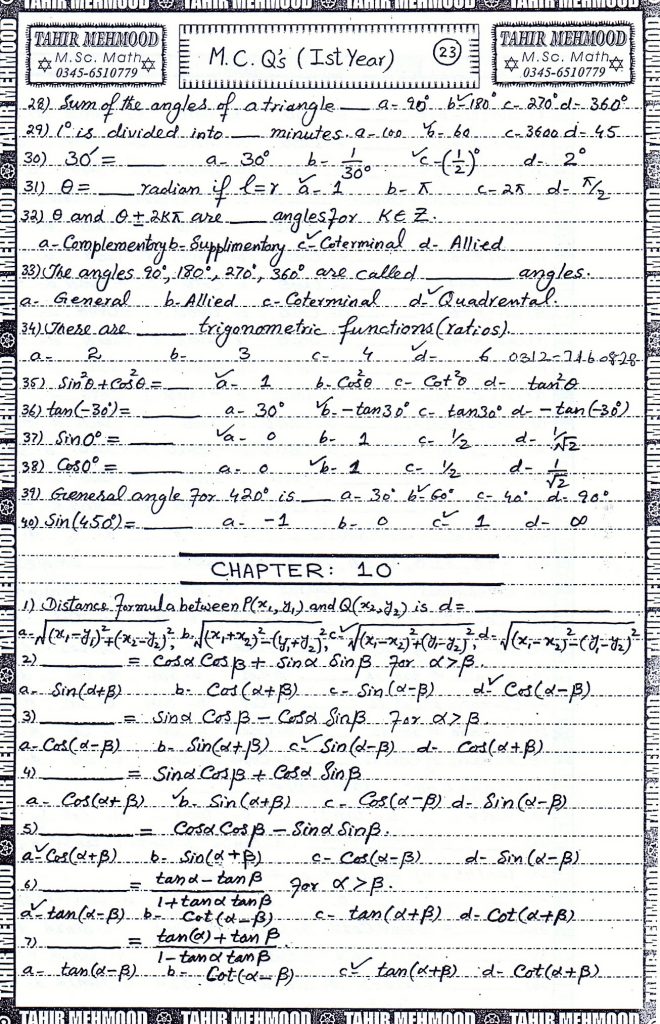 TAHIR MEHMOOD
M.Sc. Math
0345-6510779
M.C.Q's (Ist Year)
23
TAHIR MEHMOOD
M.Sc. Math
0345-6510779
28) Sum of the angles of a triangle ___ a- 90° b-✓180° c- 270° d- 360°
29) 1° is divided into ___ minutes. a- 100 ✓b- 60 c- 3600 d- 45
30) 30′ = ___ a- 30° b- 1/30° ✓c- (1/2)° d- 2°
31) θ = ___ radian if l=r ✓a- 1 b- π c- 2π d- π/2
32) θ and θ ± 2Kπ are ___ angles for K∈Z.
a- Complementory b- Supplimentory c-✓ Coterminal d- Allied
33) The angles 90°, 180°, 270°, 360° are called ___ angles.
a- General b- Allied c- Coterminal d-✓ Quadrental.
34) There are ___ trigonometric functions (ratios).
a- 2 b- 3 c- 4 ✓d- 6 0312-7460828
35) Sin²θ + Cos²θ = ___ ✓a- 1 b- Cos²θ c- Cot²θ d- tan²θ
36) tan(-30°) = ___ a- 30° ✓b- -tan30° c- tan30° d- -tan(-30°)
37) Sin0° = ___ ✓a- 0 b- 1 c- 1/2 d- 1/√2
38) Cos0° = ___ a- 0 ✓b- 1 c- 1/2 d- 1/√2
39) General angle for 420° is ___ a- 30° b-✓ 60° c- 40° d- 90°
40) Sin(450°) = ___ a- -1 b- 0 c-✓ 1 d- ∞
CHAPTER: 10
1) Distance formula between P(x₁, y₁) and Q(x₂, y₂) is d = ___
a- √(x₁-y₁)²+(x₂-y₂)², b- √(x₁+x₂)²-(y₁+y₂)², c-✓ √(x₁-x₂)²+(y₁-y₂)², d- √(x₁-x₂)²-(y₁-y₂)²
2) ___ = Cosα Cosβ + Sinα Sinβ for α>β.
a- Sin(α+β) b- Cos(α+β) c- Sin(α-β) d-✓ Cos(α-β)
3) ___ = Sinα Cosβ - Cosα Sinβ for α>β.
a- Cos(α-β) b- Sin(α+β) c-✓ Sin(α-β) d- Cos(α+β)
4) ___ = Sinα Cosβ + Cosα Sinβ
a- Cos(α+β) ✓b- Sin(α+β) c- Cos(α-β) d- Sin(α-β)
5) ___ = Cosα Cosβ - Sinα Sinβ.
a-✓ Cos(α+β) b- Sin(α+β) c- Cos(α-β) d- Sin(α-β)
6) ___ = tanα - tanβ / 1+tanα tanβ for α>β.
a-✓ tan(α-β) b- Cot(α-β) c- tan(α+β) d- Cot(α+β)
7) ___ = tan(α)+tanβ / 1-tanα tanβ
a- tan(α-β) b- Cot(α-β) c-✓ tan(α+β) d- Cot(α+β)
TAHIR MEHMOOD TAHIR MEHMOOD TAHIR MEHMOOD TAHIR MEHMOOD